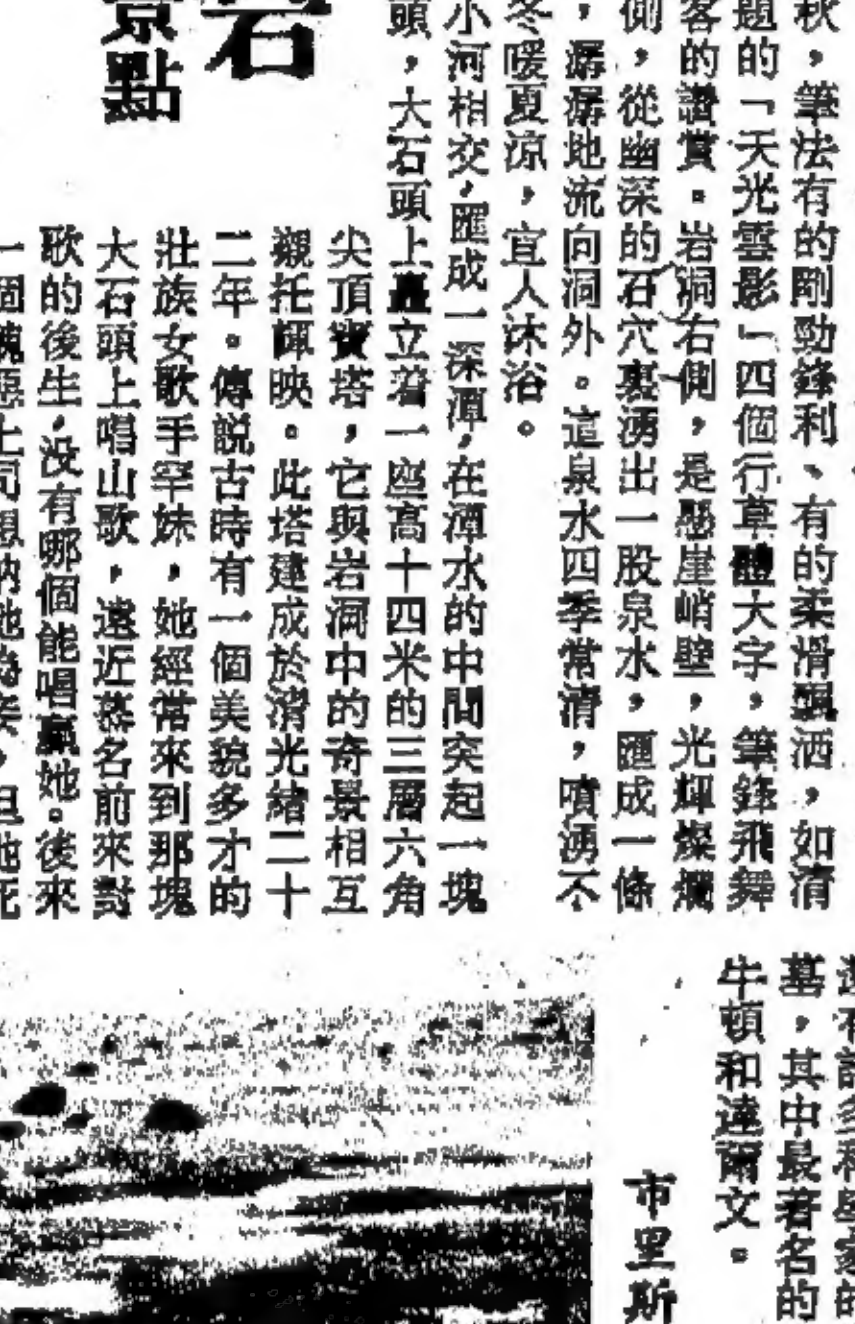 秋，筆法有的剛勁鋒利、有的柔滑飄洒，如清
題的「天光雲影」四個行草體大字，筆鋒飛舞
客的讚賞。岩洞右側，是懸崖峭壁，光輝燦爛
側，從幽深的石穴裏湧出一股泉水，匯成一條
，潺潺地流向洞外。這泉水四季常清，噴湧不
冬暖夏涼，宜人沐浴。
小河相交，匯成一深潭，在潭水的中間突起一塊
頭，大石頭上矗立着一座高十四米的三層六角
尖頂寶塔，它與岩洞中的奇景相互
襯托輝映。此塔建成於清光緒二十
二年。傳説古時有一個美貌多才的
壯族女歌手罕妹，她經常來到那塊
大石頭上唱山歌，遠近慕名前來對
歌的後生，没有哪個能唱贏她。後來
一個醜惡土司想納她為妾，但她死
岩
景點
還有許多科學家的
墓，其中最著名的
牛頓和達爾文。
市里斯